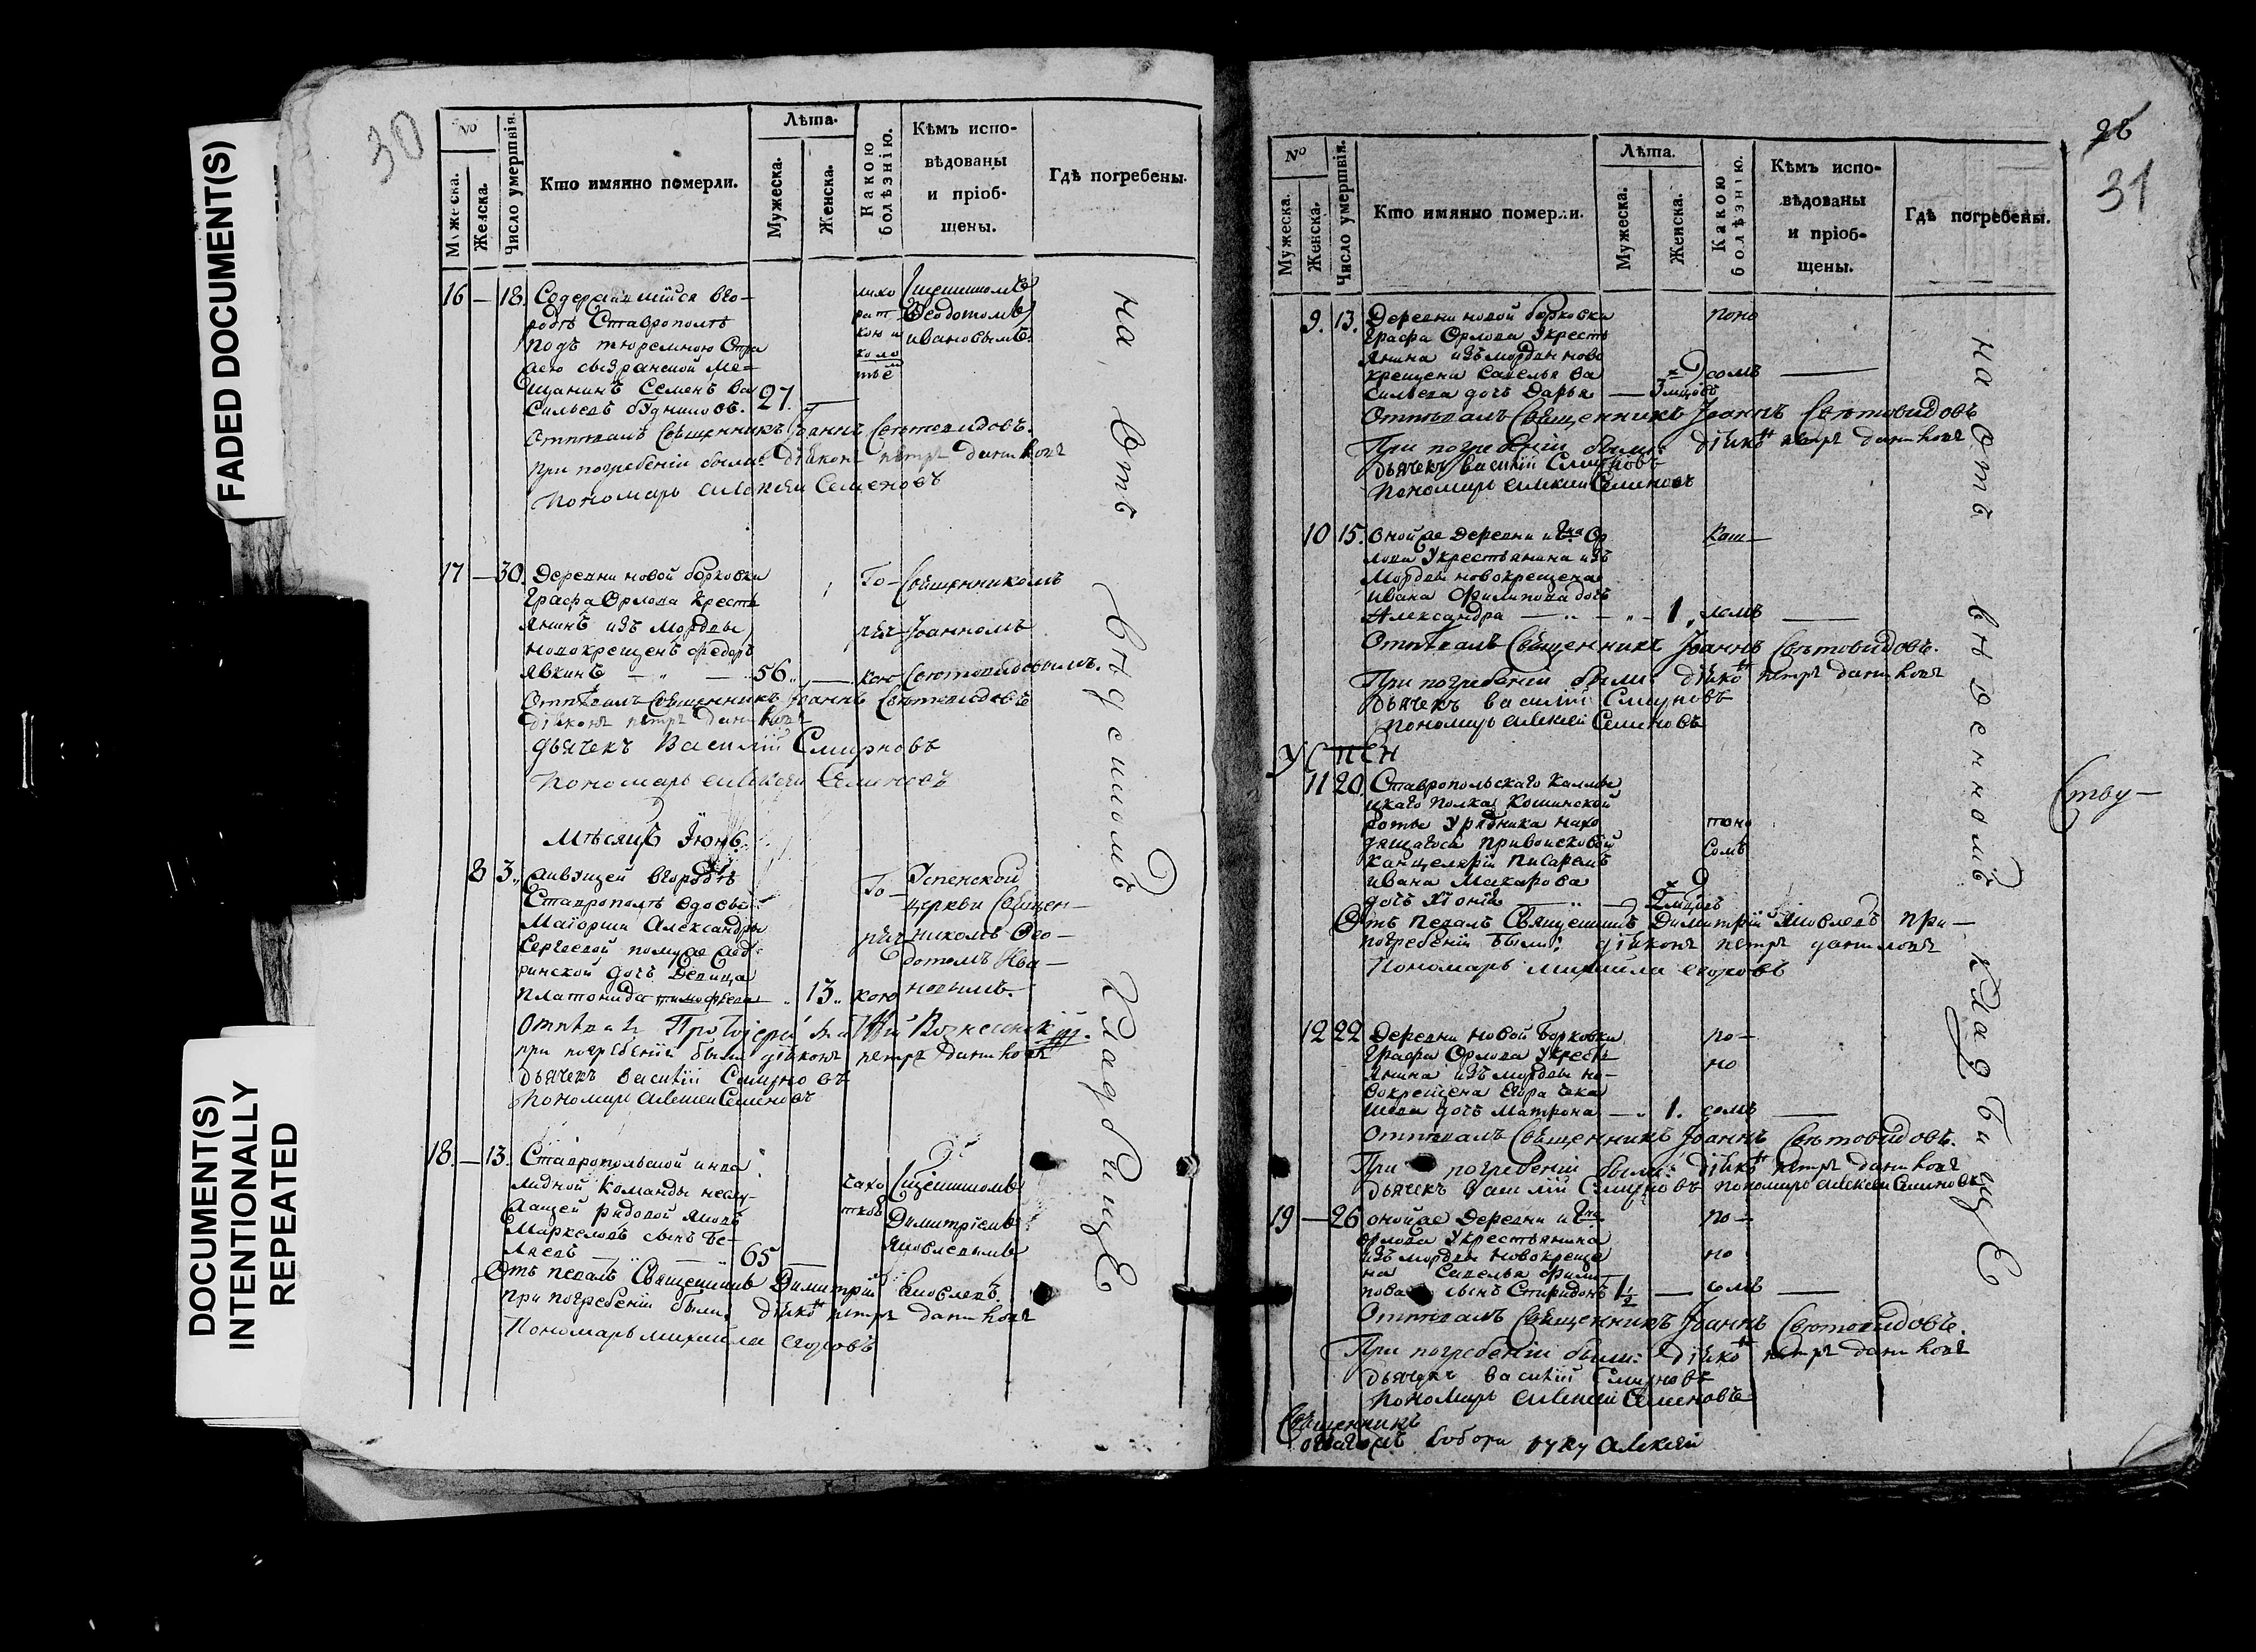 FADED DOCUMENT(S)
DOCUMENT(S)
INTENTIONALLY
REPEATED
30
№
Мужеска.
Женска.
Число умертвія.
Кто имянно померли.
Лѣта.
Мужеска.
Женска.
Какою
болѣзнію.
Кѣмъ испо-
вѣдованы
и пріоб-
щены.
Гдѣ погребены.
16 — 18. Содержащійся въ го-
родѣ Ставрополѣ
подъ тюремною Стра
жею сызранской ме=
щанинъ Семенъ Ва
сильевъ 27. —
Священникомъ
Феодотомъ
Ивановымъ.
Отпѣвалъ Священникъ Іоаннъ Свѣтовидовъ.
при погребеніи были: діаконъ петръ даниловъ
Пономарь алексѣй Семеновъ
17 — 30. Деревни новой борковки
Графа Орлова кресть
янинъ изъ Мордвы
новокрещенъ федоръ
Явкинъ — 56 — 
го-
ряч-
кою
Священникомъ
Іоанномъ
Свѣтовидовымъ.
Отпѣвалъ Священникъ Іоаннъ Свѣтовидовъ
діаконъ петръ даниловъ
дьячекъ Василій Смирновъ
Пономарь алексѣй Семеновъ
Мѣсяцъ Іюнь.
8 3. живущей въ городѣ
Ставрополѣ вдовы
Маіорши Александры
Сергеевой
дочь Девица
Платонида тимофеева 13
го-
ряч-
кою
Успенской
церкви Священ-
никомъ Фео-
дотомъ Ива-
новымъ.
при погребеніи были діаконъ петръ даниловъ
дьячекъ василій Смирновъ
Пономарь алексѣй Семеновъ
18. — 13. Ставропольской инва
лидной команды неслу-
жащей рядовой Яковъ
Маркеловъ сынъ Бе-
ляевъ 65 —
чахо
ткою
Священникомъ
Димитріемъ
Яковлевымъ
Отъ певалъ Священникъ Димитрій Яковлевъ.
при погребеніи были: діаконъ петръ даниловъ
Пономарь михайла егоровъ
на отведенномъ кладбищѣ
26
31
№
Мужеска.
Женска.
Число умертвія.
Кто имянно померли.
Лѣта.
Мужеска.
Женска.
Какою
болѣзнію.
Кѣмъ испо-
вѣдованы
и пріоб-
щены.
Гдѣ погребены.
9. 13. Деревни новой борковки
Графа Орлова у кресть
янина изъ мордвы ново
крещена Савелья Ва
сильева дочь Дарья — 3 мцовъ
поно
сомъ —
Отпѣвалъ Священникъ Іоаннъ Свѣтовидовъ
При погребеніи были: діаконъ петръ даниловъ
дьячекъ василій Смирновъ
Пономарь алексѣй Семеновъ
10 15. Оной же деревни и Гна Ор
лова у крестьянина изъ
Мордвы новокрещена
Ивана Филипова дочь
Александра — 1. 
каш-
лемъ —
Отпѣвалъ Священникъ Іоаннъ Свѣтовидовъ.
При погребеніи были: діаконъ петръ даниловъ
дьячекъ василій Смирновъ
пономарь алексѣй Семеновъ
Успен
11 20. Ставропольскаго Калмы
цкаго полка
роты Урядника нахо
дящагося при войсковой
канцеляріи писаремъ
Ивана Макарова
дочь 2 мцовъ
поно
сомъ
Отъ певалъ Священникъ Димитрій Яковлевъ при-
погребеніи были: діаконъ петръ даниловъ
Пономарь михайла егоровъ
Ству-
12 22 Деревни новой борковки
Графа Орлова у кресть
янина изъ мордвы но-
вокрещена Егора
дочь Матрона — 1.
по-
но
сомъ —
Отпѣвалъ Священникъ Іоаннъ Свѣтовидовъ.
При погребеніи были: діаконъ петръ даниловъ
дьячекъ василій Смирновъ пономарь алексѣй Семеновъ
19 — 26 оной же деревни и Гна
орлова у крестьянина
изъ мордвы новокреще
на Савелья фили
пова сынъ Спиридонъ 1½ —
по-
но
сомъ —
Отпѣвалъ Священникъ Іоаннъ Свѣтовидовъ.
При погребеніи были: діаконъ петръ даниловъ
дьячекъ василій Смирновъ
Пономарь алексѣй Семеновъ
на отведенномъ кладбищѣ
Священникъ
руку